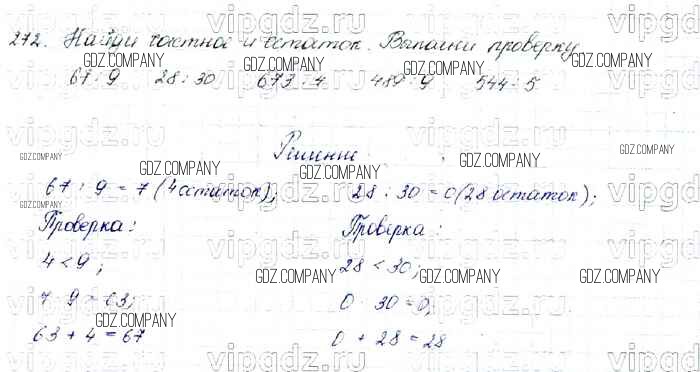 vipgdz.ru vipgdz.ru vipgdz.ru
272. Найди частное и остаток. Выполни проверку
67 : 9 28 : 30 673 : 4 489 : 9 544 : 5
GDZ.COMPANY GDZ.COMPANY GDZ.COMPANY GDZ.COMPANY
Решение
GDZ.COMPANY GDZ.COMPANY GDZ.COMPANY
67 : 9 = 7 (4 остаток); 28 : 30 = 0 (28 остаток);
GDZ.COMPANY GDZ.COMPANY GDZ.COMPANY GDZ.COMPANY
Проверка: Проверка:
GDZ.COMPANY GDZ.COMPANY GDZ.COMPANY
4 < 9; 28 < 30;
GDZ.COMPANY GDZ.COMPANY GDZ.COMPANY GDZ.COMPANY
7 · 9 = 63; 0 · 30 = 0;
GDZ.COMPANY GDZ.COMPANY GDZ.COMPANY
63 + 4 = 67 0 + 28 = 28
vipgdz.ru vipgdz.ru vipgdz.ru